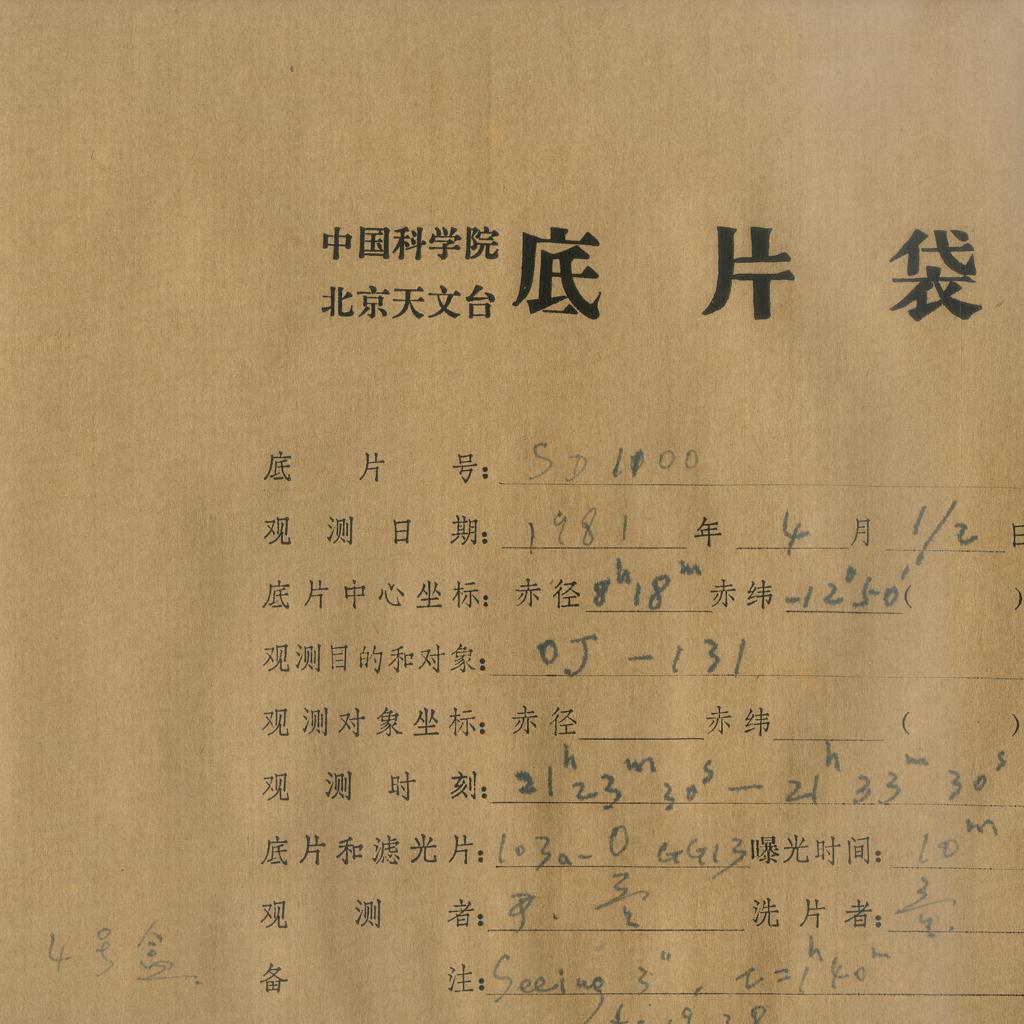 中国科学院
北京天文台
底片袋
底片号: SD 1100
观测日期: 1981 年 4 月 1/2 日
底片中心坐标: 赤径 8h18m 赤纬 -12°50′ ( )
观测目的和对象: OJ -131
观测对象坐标: 赤径 赤纬 ( )
观测时刻: 21h23m30s — 21h33m30s
底片和滤光片: 103a-O GG13 曝光时间: 10m
观测者: 洗片者:
4号盒
备注: Seeing 3″, t=1h40m